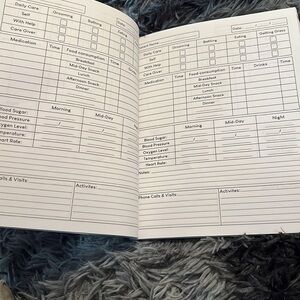 Daily Care
Grooming
Bathing
With Help
Care Giver
Medication
Time
Food consumption
Time
Breakfast
Mid-Day Snack
Lunch
Afternoon Snack
Dinner
Morning
Mid-Day
Blood Sugar:
Blood Pressure
Oxygen Level:
Temperature:
Heart Rate:
Calls & Visits:
Activites:
Date:
Grooming
Bathing
Eating
Getting Dress
Self
With Help
Care Giver
Medication
Time
Food consumption
Time
Drinks
Time
Breakfast
Mid-Day Snack
Lunch
Afternoon Snack
Dinner
Morning
Mid-Day
Night
Blood Sugar:
Blood Pressure
Oxygen Level:
Temperature:
Heart Rate:
Notes:
Phone Calls & Visits:
Activites: